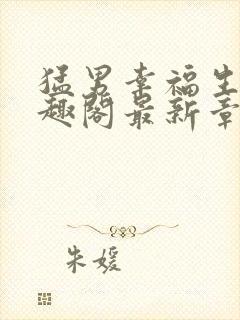 猛男幸福生
趣阁最新章
朱媛